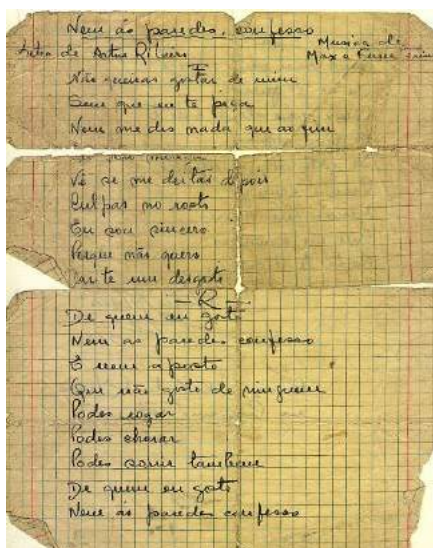 Nem ás paredes confesso
Letra de Artur Ribeiro
Musica de
Max e
I
Não queiras gostar de mim
Sem que eu te peça
Nem me des nada que ao fim
Eu não mereça
Vê se me deitas depois
Culpas no rosto
Eu sou sincero
Porque não quero
Dar-te um desgosto
— R —
De quem eu gosto
Nem as paredes confesso
E nem aposto
Que não gosto de ninguem
Podes rogar
Podes chorar
Podes sorrir tambem
De quem eu gosto
Nem ás paredes confesso